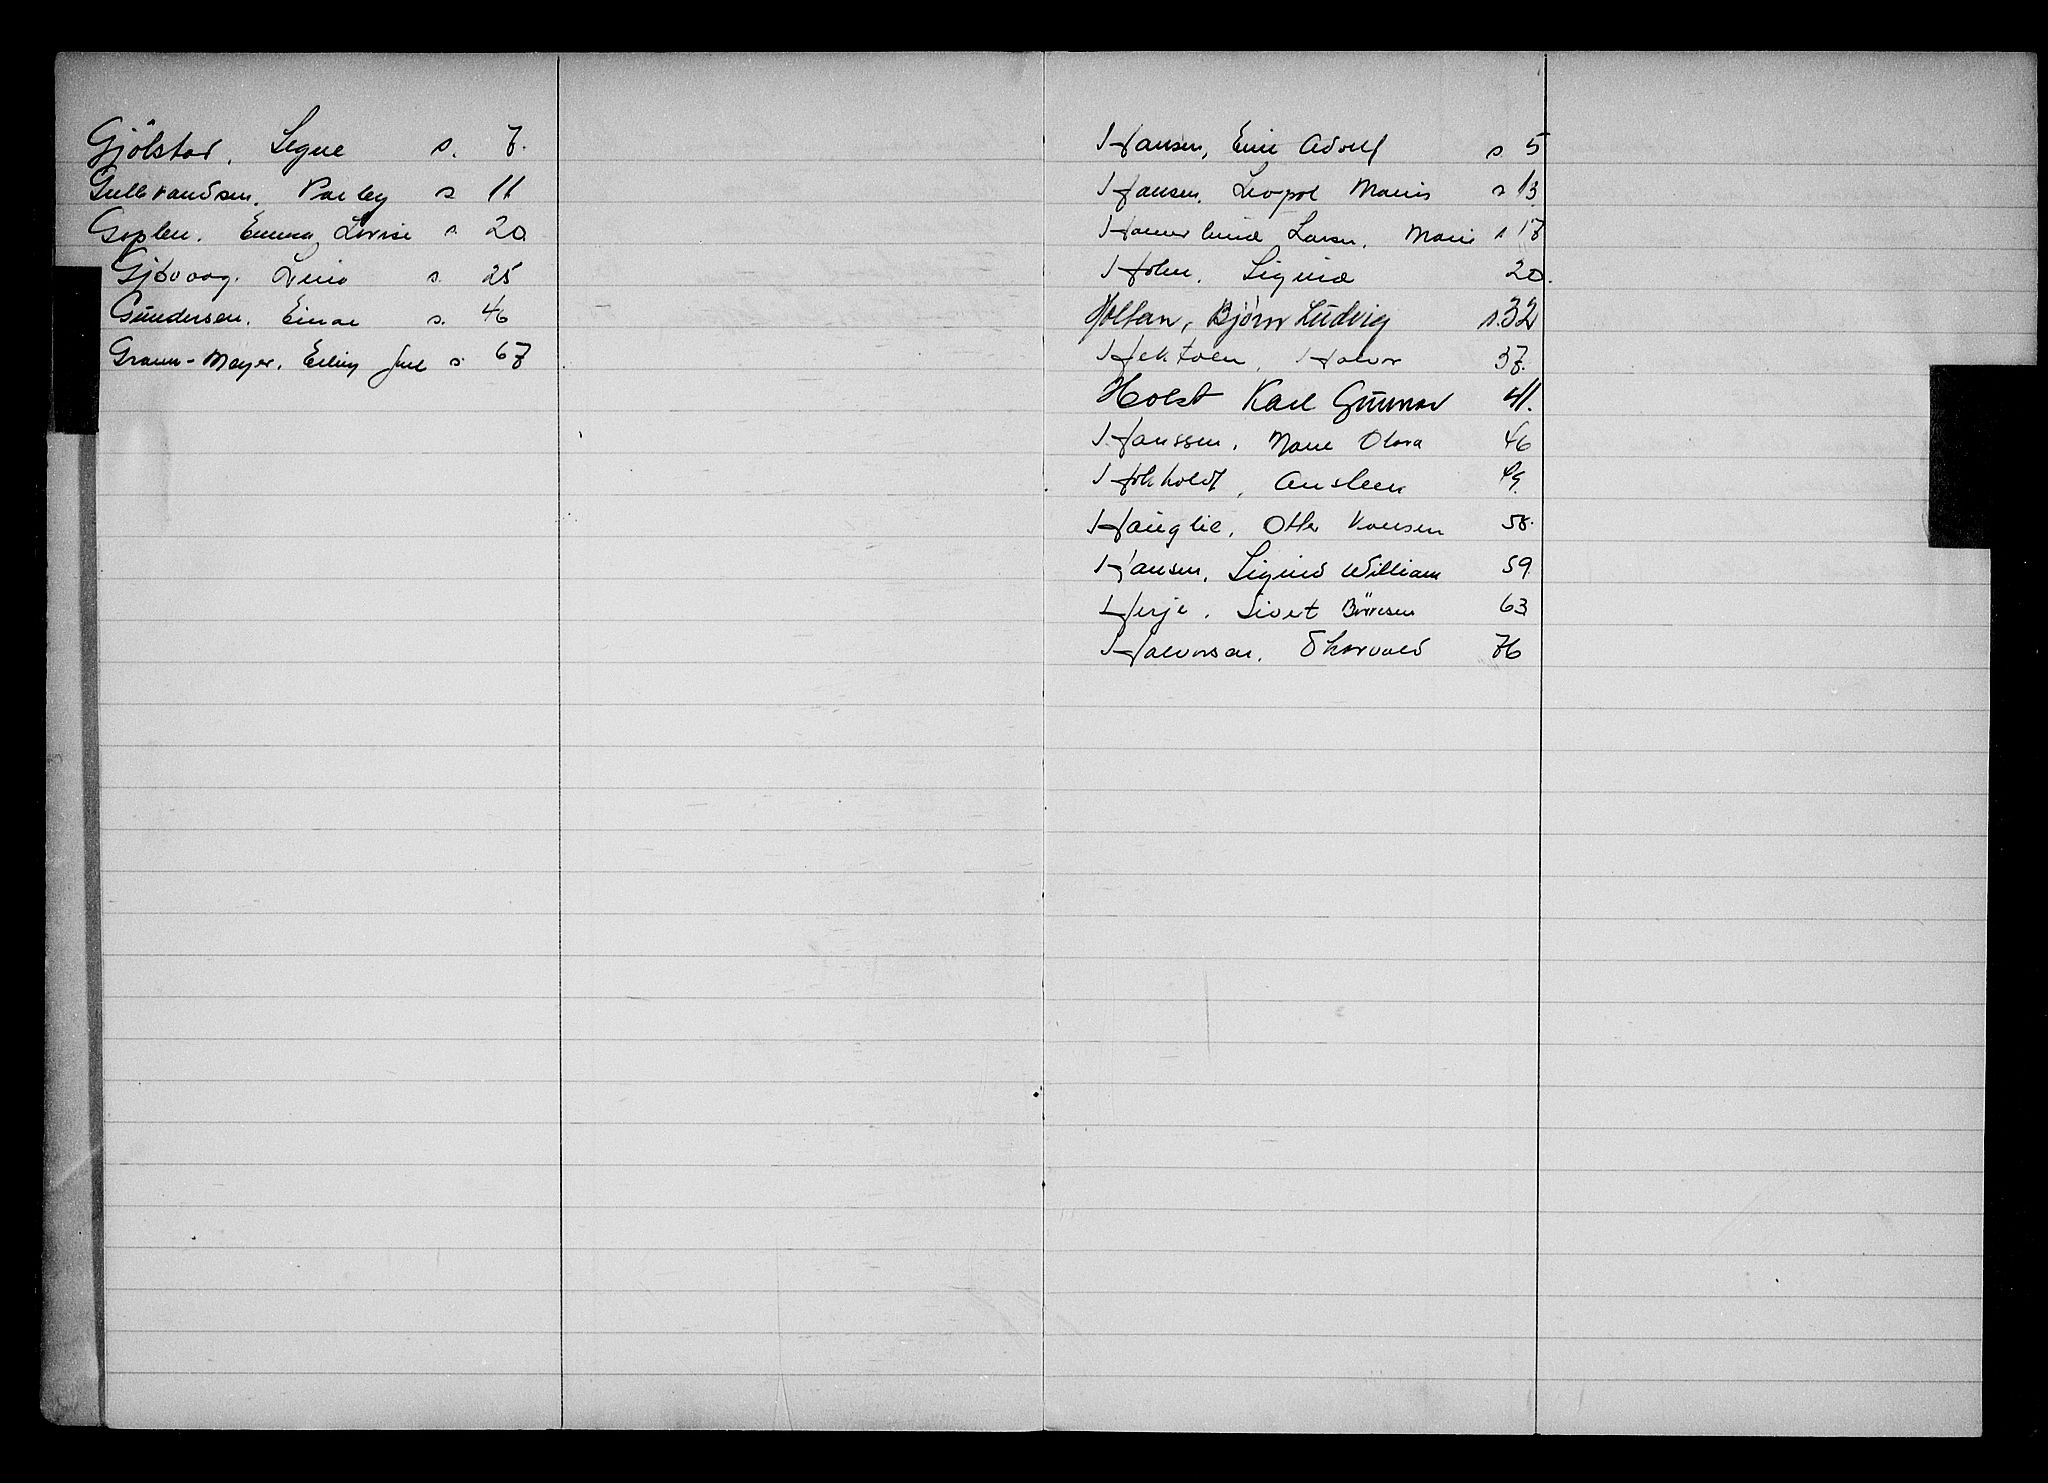 Gjölstad, Signe s. 7.
Gulbrandsen, s 11
Goplen. Emma Lovise s. 20
Gjövaag. s. 25
Gundersen. Einar s. 46
Gram-Meyer. Erling Juel s. 67
Hansen, Emil Adolf s 5
Hansen, Leopol Marius s 13
Larsen, Marie s 17
Holm, Sigurd 20.
Holtan, Bjørn Ludvig s.32
Hektoen, Halvor 37.
Holst Karl Gunnar 41.
Hanssen, Marie Olava 46
49.
Hauglie, Otter Hansen 58.
Hansen, Sigurd William 59
Herje. Sivert Börresen 63
Halvorsen, Thorvald 76